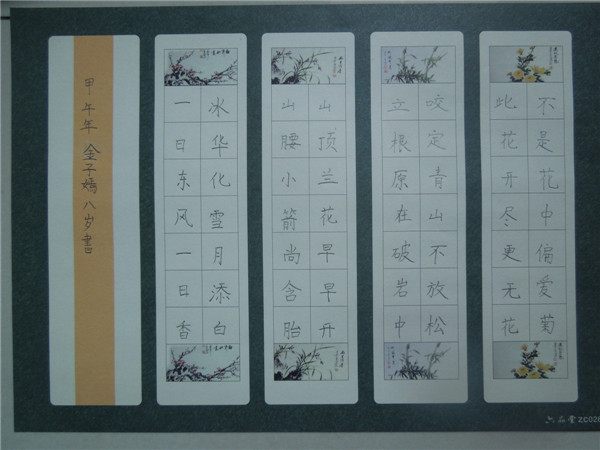 不是花中偏爱菊
此花开尽更无花
咬定青山不放松
立根原在破岩中
山顶兰花早早开
山腰小箭尚含胎
冰华化雪月添白
一日东风一日香
甲午年 金子嫣 八岁書
六品堂 ZC026